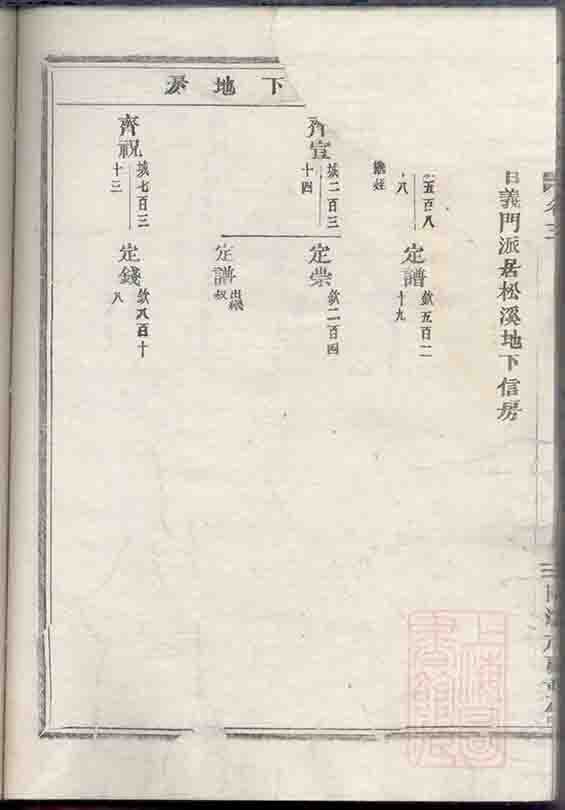 義門派居松溪地下信房
下地房
五百八
八
繼姪
定譜
欽五百二
十九
齊宣
城二百三
十四
定崇
欽二百四
定譜
出繼
叔
齊祝
城七百三
十三
定錢
欽八百十
八